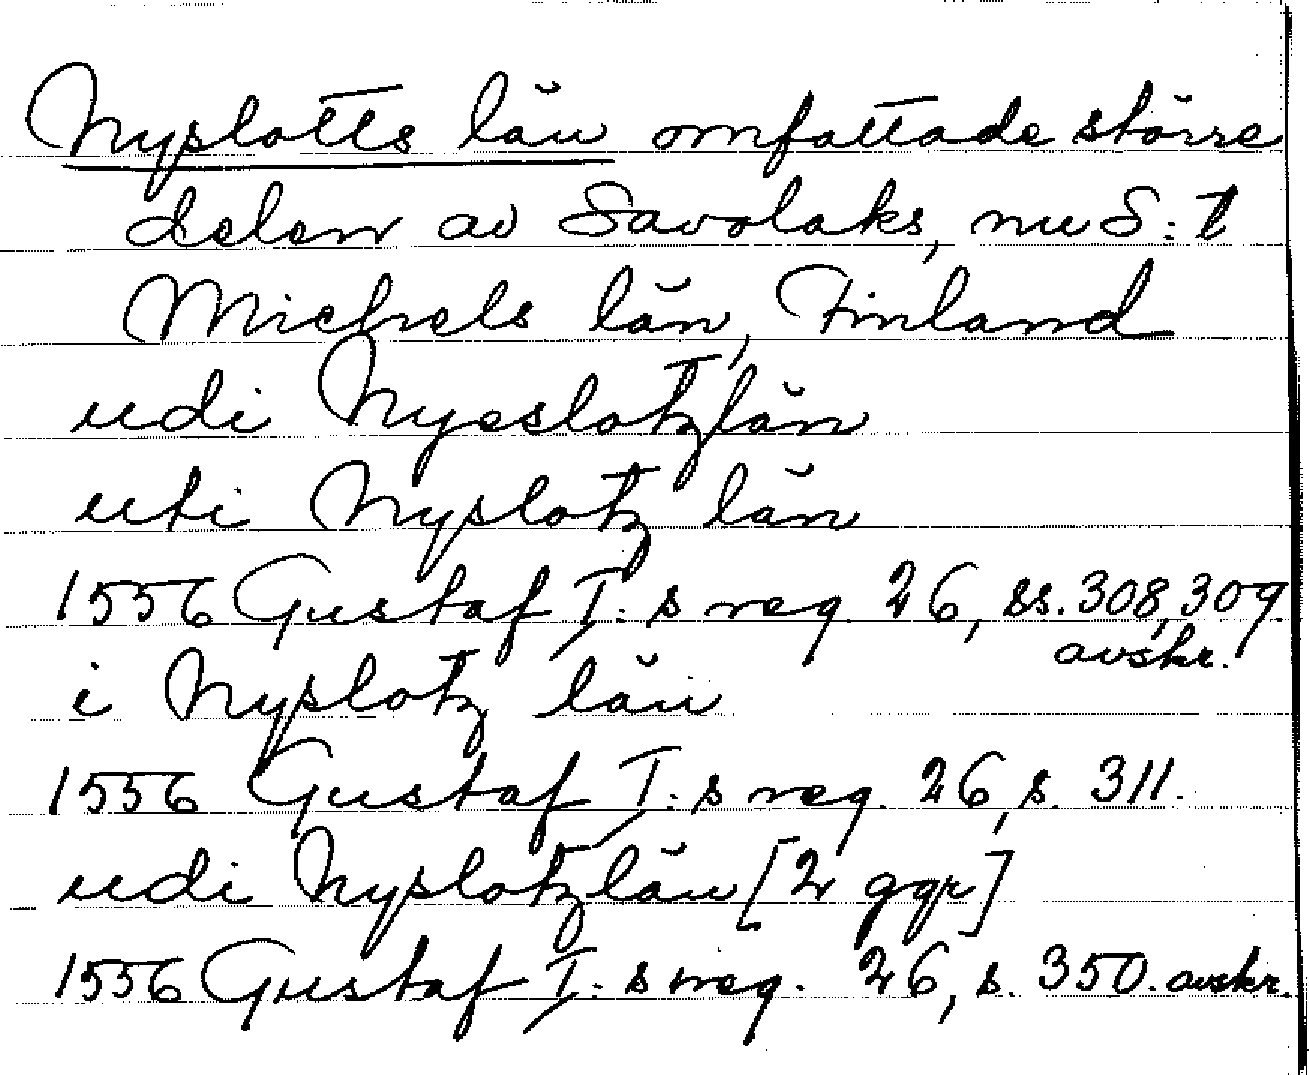 Nyslotts län omfattade större
delen av Savolaks, nu S:t
Michels län, Finland
udi Nyeslotzlän
uti Nyslotz län
1556 Gustaf I:s reg. 26, ss. 308, 309.
avskr.
i Nyslotz län
1556 Gustaf I:s reg. 26, s. 311.
udi Nyslotzlän [2 ggr]
1556 Gustaf I:s reg. 26, s. 350. avskr.